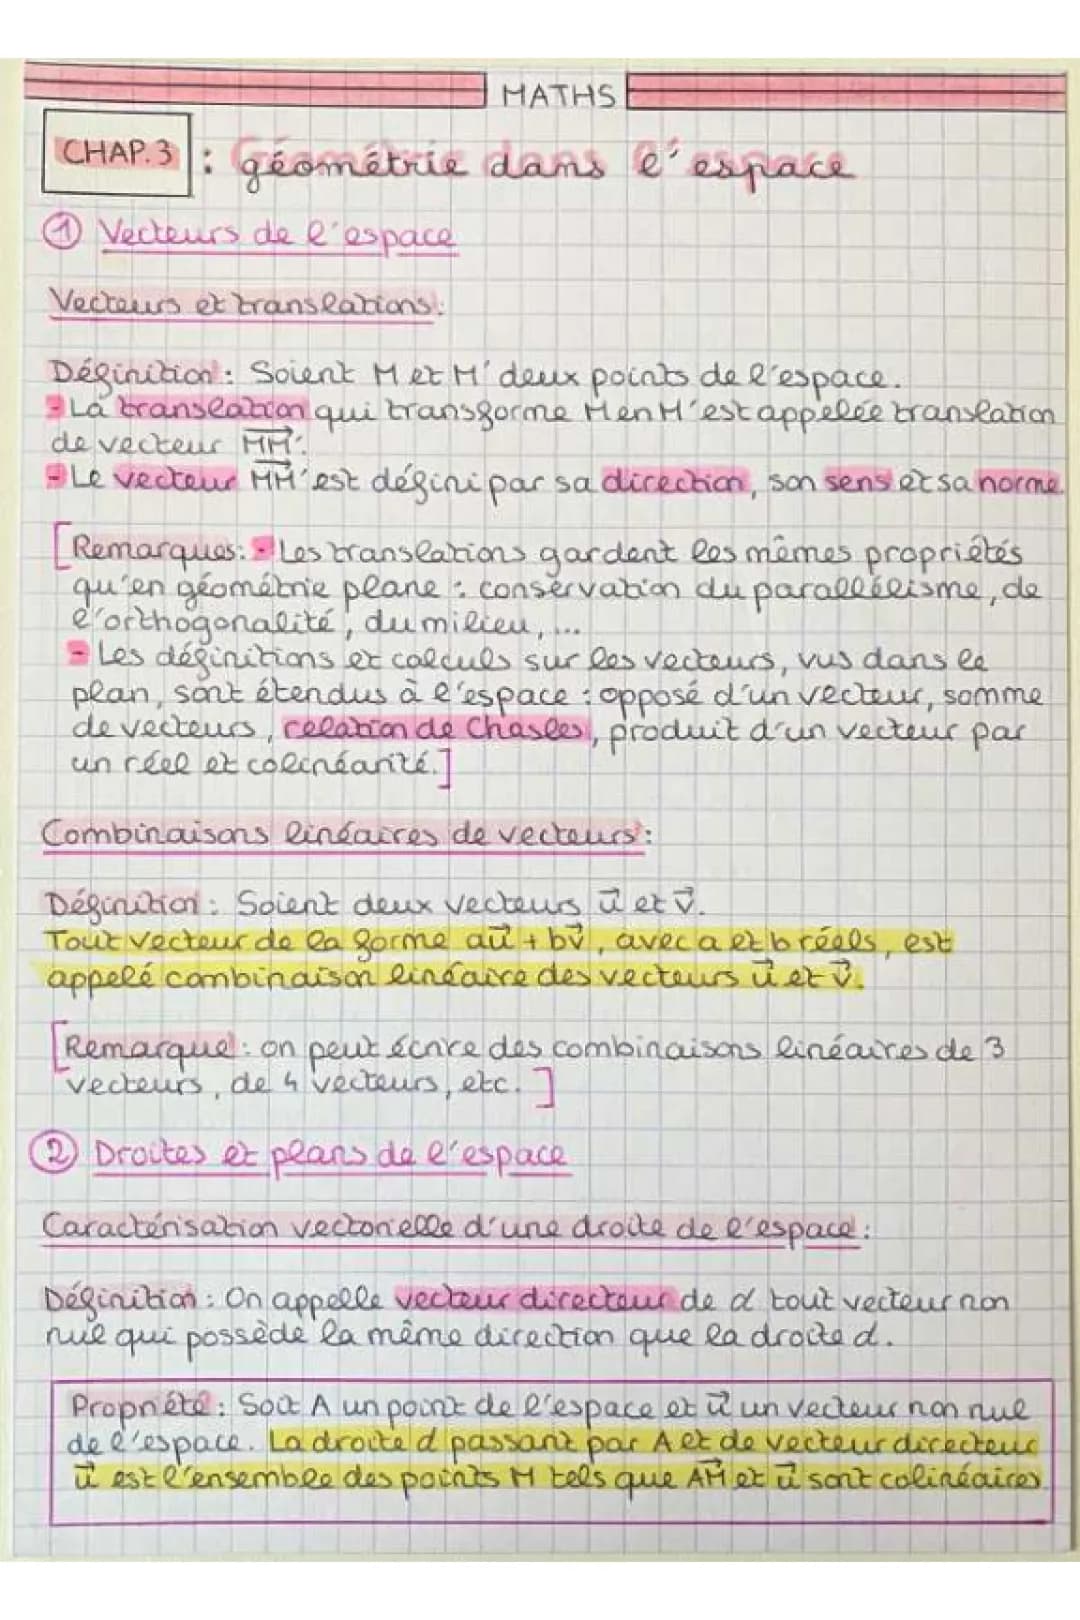 MATHS
CHAP. 3 : géométrie dans l'espace
① Vecteurs de l'espace
Vecteurs et translations :
Définition : Soient M et M' deux points de l'espace.
- La translation qui transforme M en M' est appelée translation
de vecteur MM⃗'.
- Le vecteur MM⃗' est défini par sa direction, son sens et sa norme.
[Remarques : - Les translations gardent les mêmes propriétés
qu'en géométrie plane : conservation du parallélisme, de
l'orthogonalité, du milieu, ...
- Les définitions et calculs sur les vecteurs, vus dans le
plan, sont étendus à l'espace : opposé d'un vecteur, somme
de vecteurs, relation de Chasles, produit d'un vecteur par
un réel et colinéarité.]
Combinaisons linéaires de vecteurs :
Définition : Soient deux vecteurs u⃗ et v⃗.
Tout vecteur de la forme au⃗ + bv⃗, avec a et b réels, est
appelé combinaison linéaire des vecteurs u⃗ et v⃗.
[Remarque : on peut écrire des combinaisons linéaires de 3
vecteurs, de 4 vecteurs, etc. ]
② Droites et plans de l'espace
Caractérisation vectorielle d'une droite de l'espace :
Définition : On appelle vecteur directeur de d tout vecteur non
nul qui possède la même direction que la droite d.
Propriété : Soit A un point de l'espace et u⃗ un vecteur non nul
de l'espace. La droite d passant par A et de vecteur directeur
u⃗ est l'ensemble des points M tels que AM⃗ et u⃗ sont colinéaires.